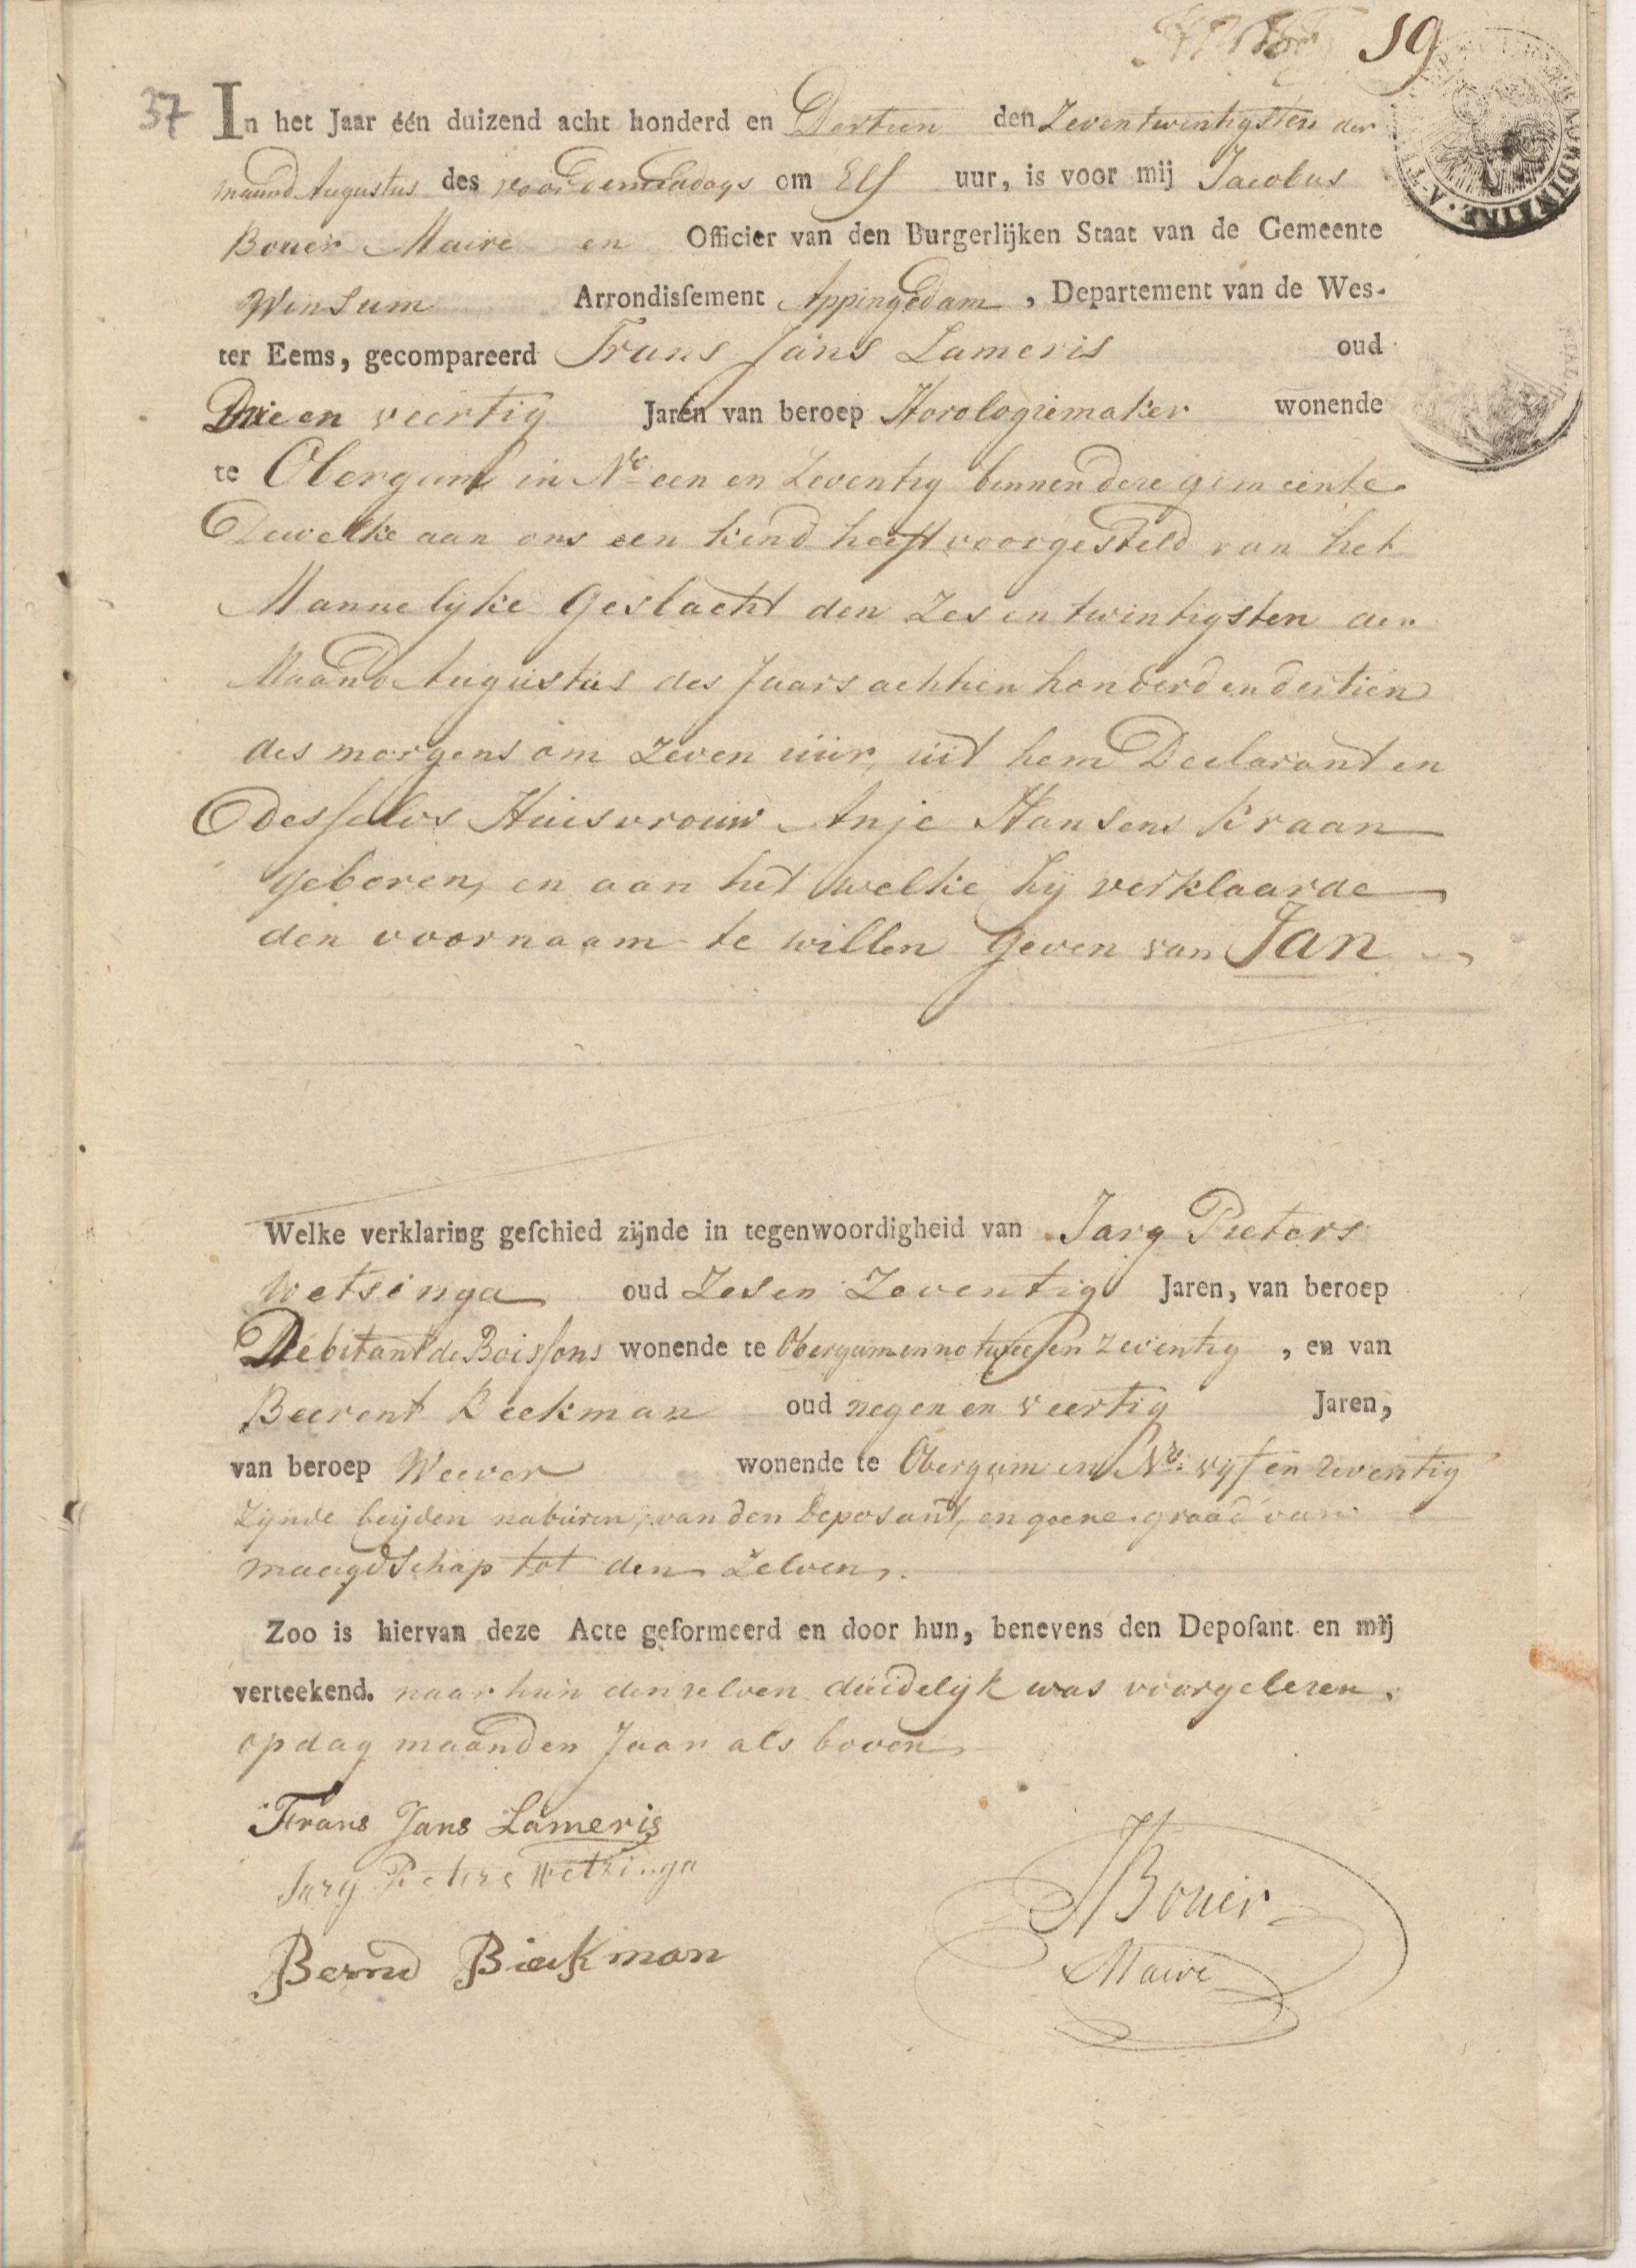 19
37 In het Jaar één duizend acht honderd en Dertien den Zeven twintigsten der
maand Augustus des voordemiddags om Elf uur, is voor mij Jacobus
Bouer Maire en Officier van den Burgerlijken Staat van de Gemeente
Winsum Arrondisſement Appingedam, Departement van de Wes-
ter Eems, gecompareerd Frans Jans Lameris oud
Drie en veertig Jaren van beroep Horologiemaker wonende
te Obergum in No een en Zeventig binnen deze gemeente.
Dewelke aan ons een kind heeft voorgesteld van het
Mannelyke Geslacht den Zes en twintigsten der
Maand Augustus des Jaars achtien honderd en dertien
des morgens om Zeven uur, uit hem Declarant en
desselvs Huisvrouw Anje Hansens Kraan
geboren, en aan het welke hy verklaarde
den voornaam te willen geven van Jan
Welke verklaring geſchied zijnde in tegenwoordigheid van Jarg Pieters
Wetsinga oud Zes en Zeventig Jaren, van beroep
Debitant de Boissons wonende te Obergum in no twee en zeventig, en van
Beerent Beekman oud negen en veertig Jaren,
van beroep Weever wonende te Obergum in No. vyf en zeventig
Zynde beyden naburen, van den Deposant, en geene graad van
maagdschap tot den Zelven.
Zoo is hiervan deze Acte geformeerd en door hun, benevens den Depoſant en mij
verteekend. naar hun denzelven duidelyk was voorgelezen,
op dag maand en Jaar als boven
Frans Jans Lameris
Jarg Pieters Wetzinga
JBouer
Bernd Bieekman
Maire